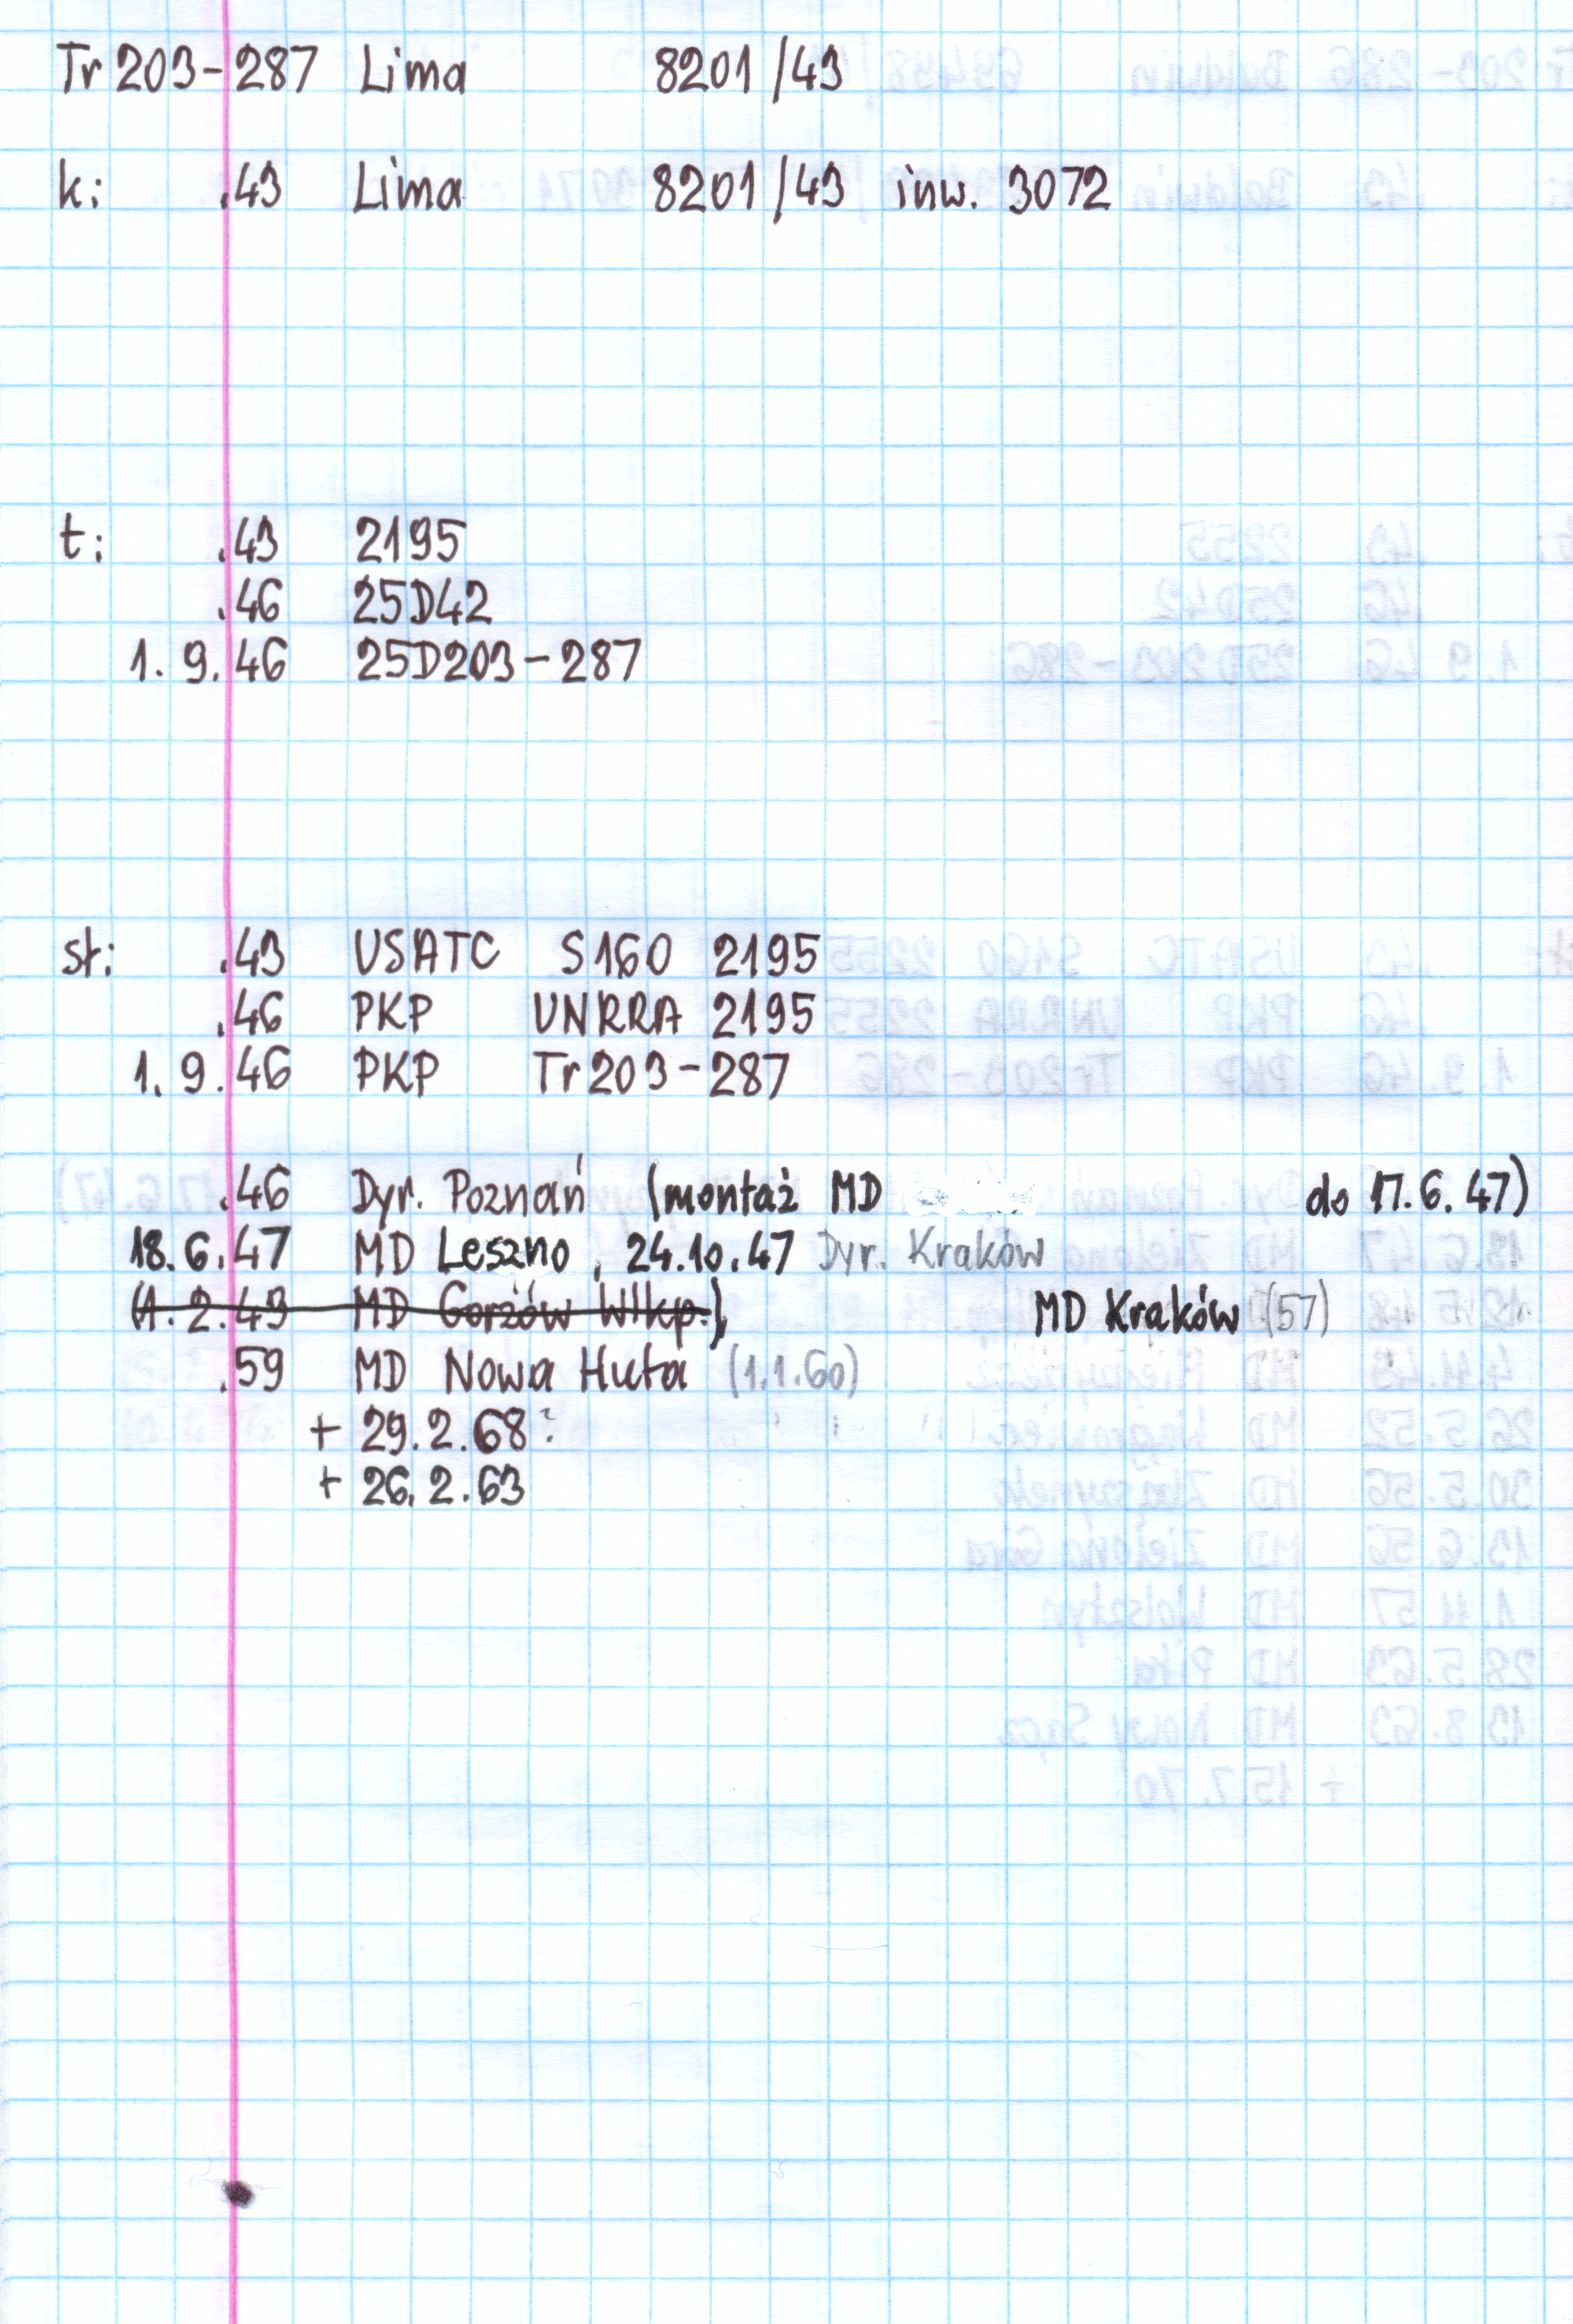 Tr 203-287 Lima 8201/43
k: .43 Lima 8201/43 inw. 3072
t: .43 2195
.46 25D42
1.9.46 25D203-287
st: .43 USATC S160 2195
.46 PKP UNRRA 2195
1.9.46 PKP Tr203-287
.46 Dyr. Poznań (montaż MD do 17.6.47)
18.6.47 MD Leszno, 24.10.47 Dyr. Kraków
(1.2.49 MD Gorzów Wlkp.), MD Kraków (57)
.59 MD Nowa Huta (1.1.60)
+ 29.2.68?
+ 26.2.63